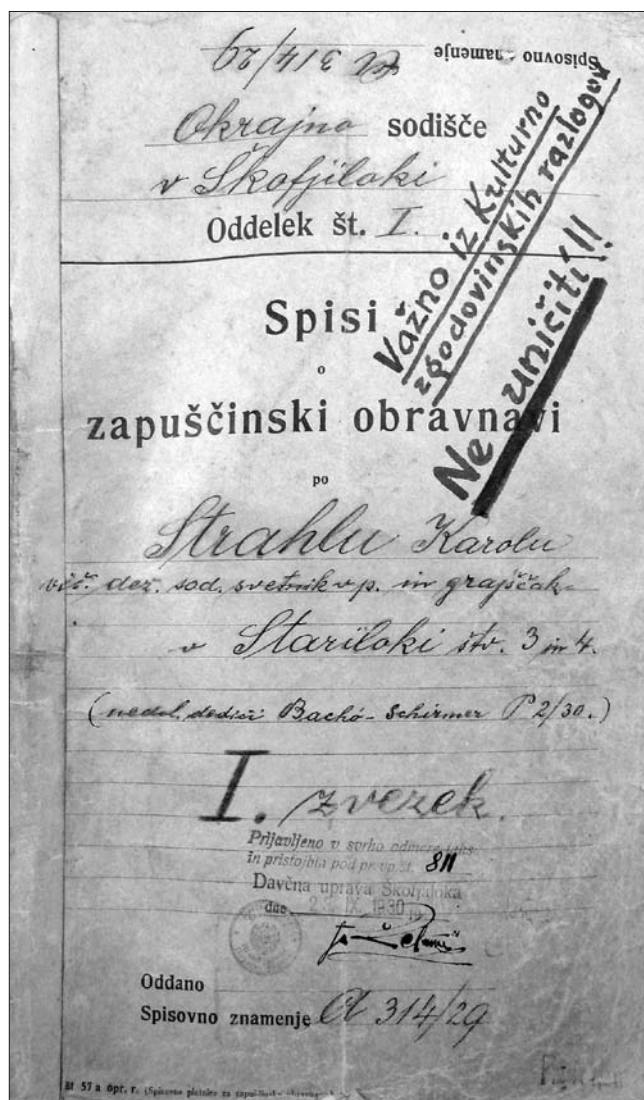 Spisovno znamenje A 314/29
Okrajno sodišče
v Škofjiloki
Oddelek št. I.
Važno iz Kulturno
zgodovinskih razlogov
Ne uničiti!!
Spisi
o
zapuščinski obravnavi
po
Strahlu Karolu
viš. dež. sod. svetnik v p. in grajščak
v Stariloki štv. 3 in 4.
(nedol. dediči Bachó-Schirmer P 2/30.)
I. zvezek.
Prijavljeno v svrho odmere taks
in pristojbin pod pr. vp. št. 811
Davčna uprava Škofjaloka
dne 2 IX. 1930
Oddano
Spisovno znamenje A 314/29
št 57 a opr. r. (Spisovne platnice za zapuščinske obravnave)